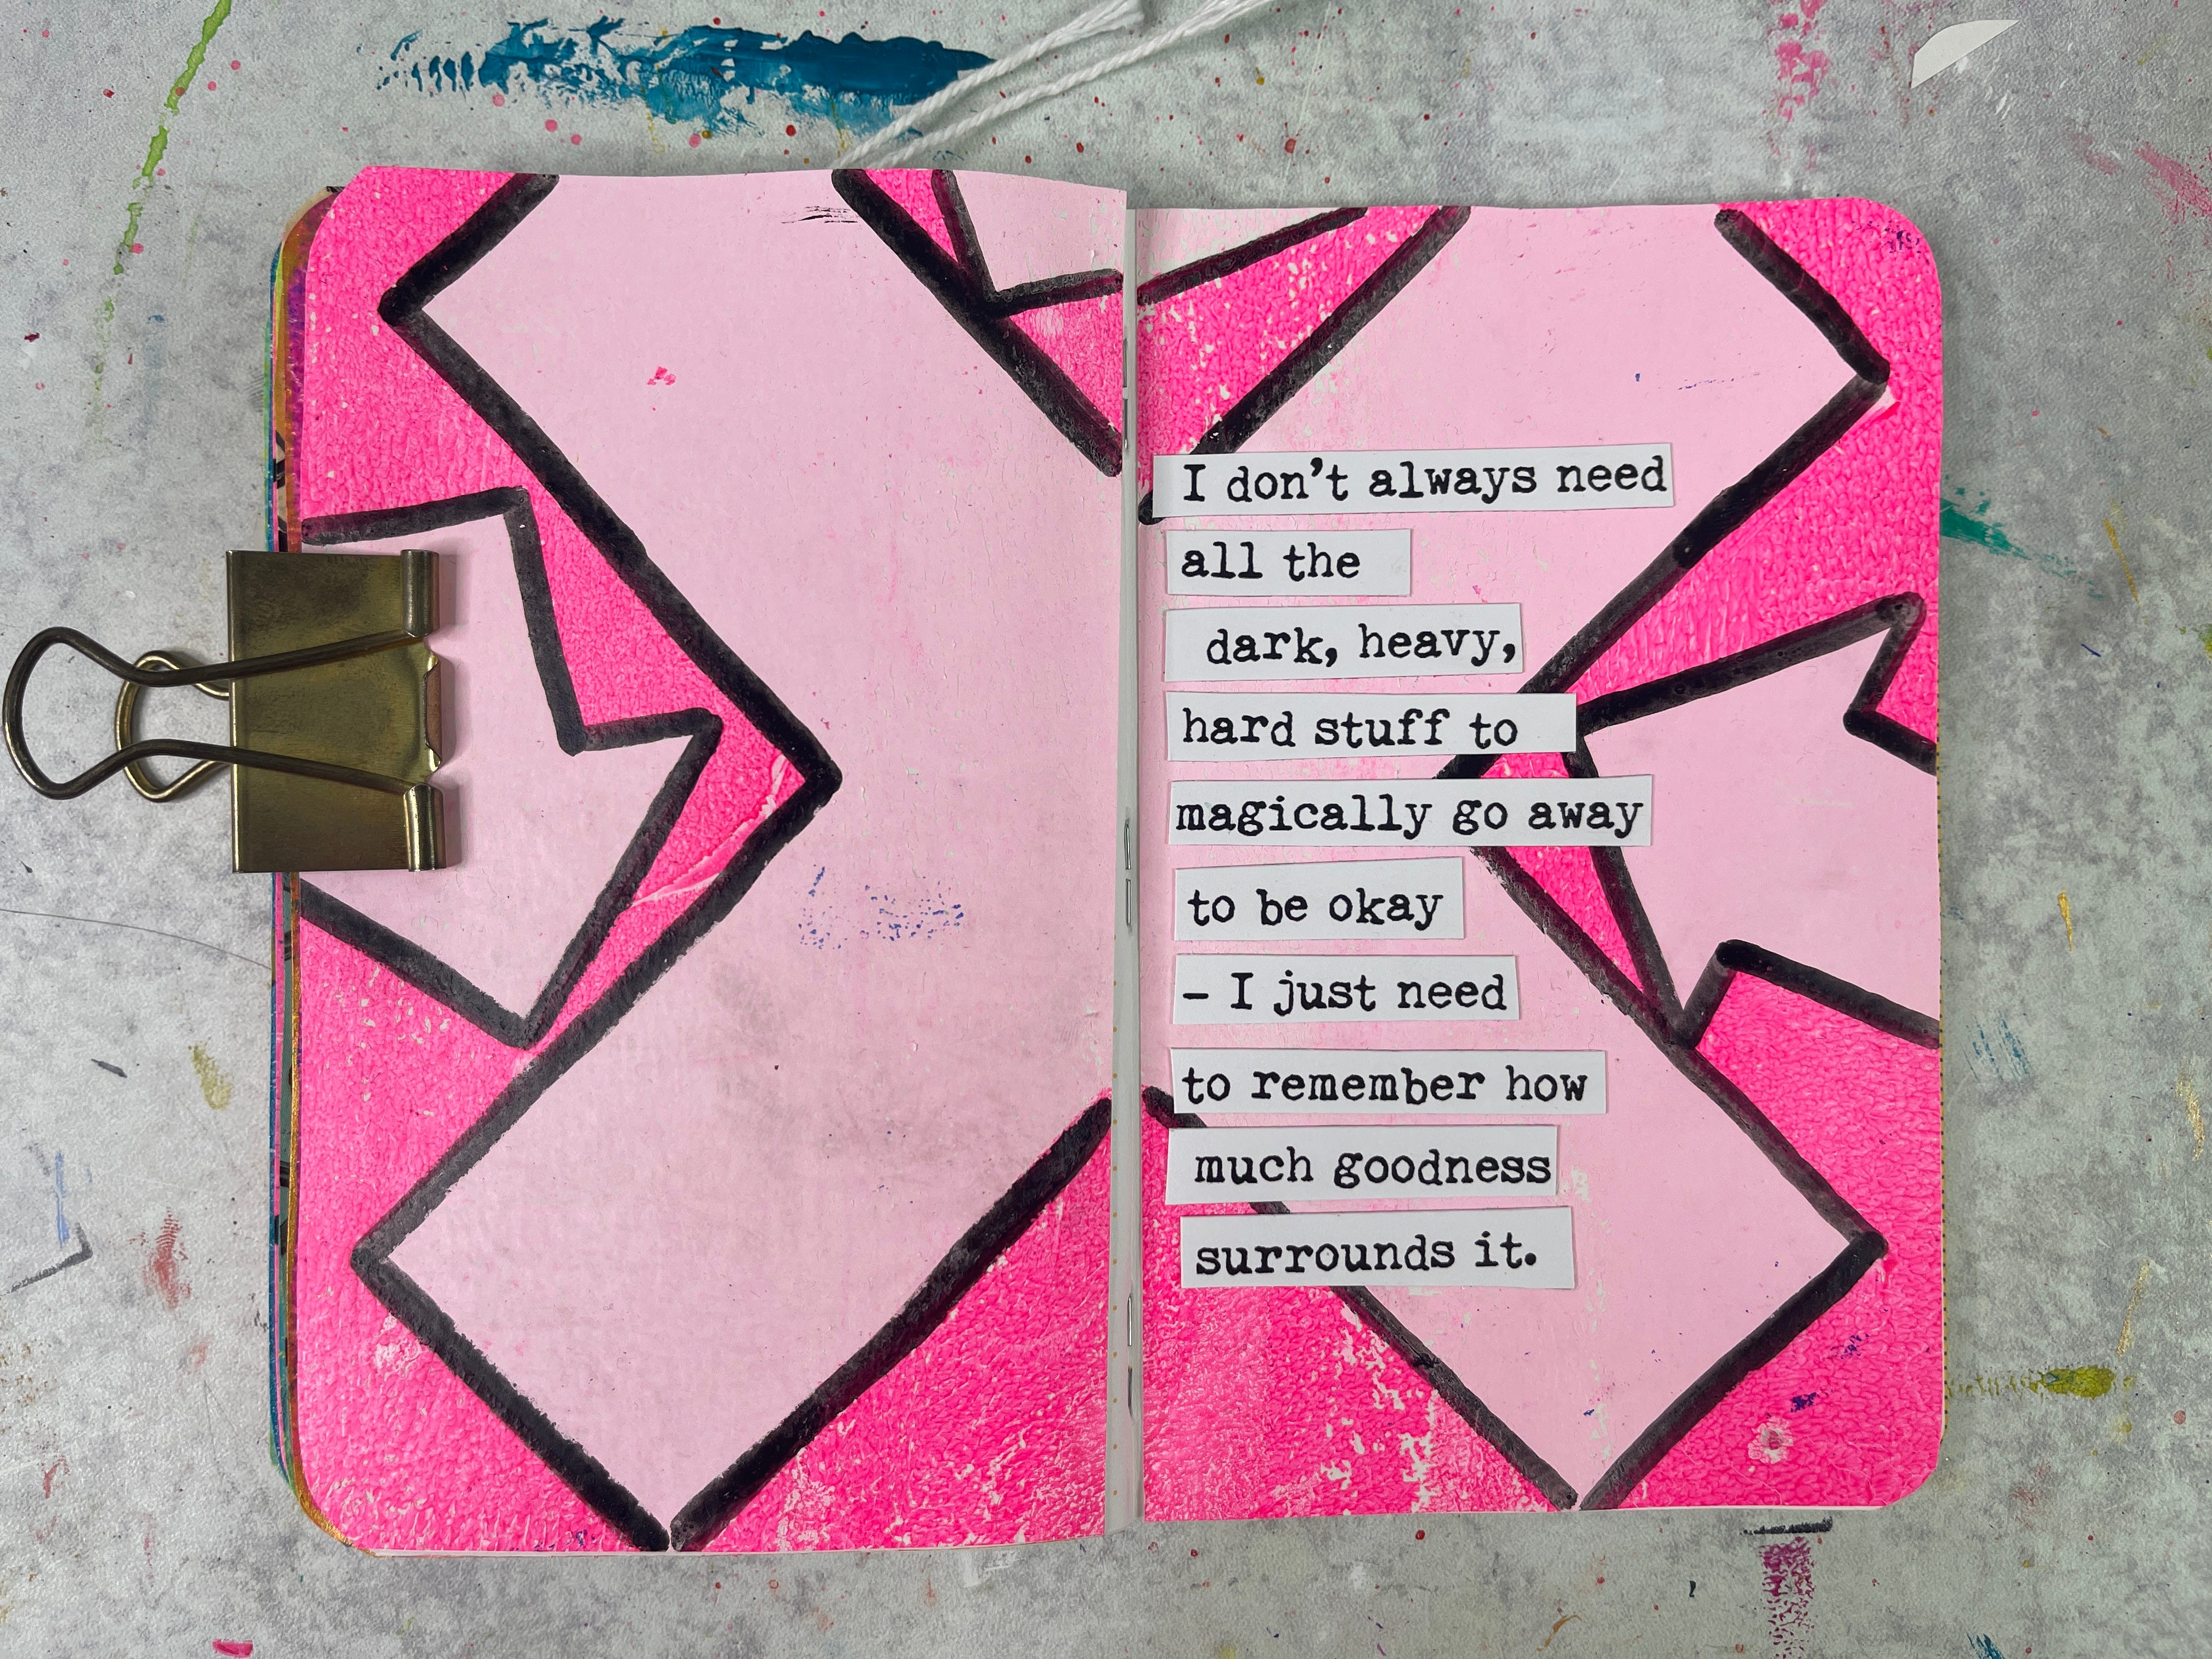 I don't always need
all the
dark, heavy,
hard stuff to
magically go away
to be okay
– I just need
to remember how
much goodness
surrounds it.